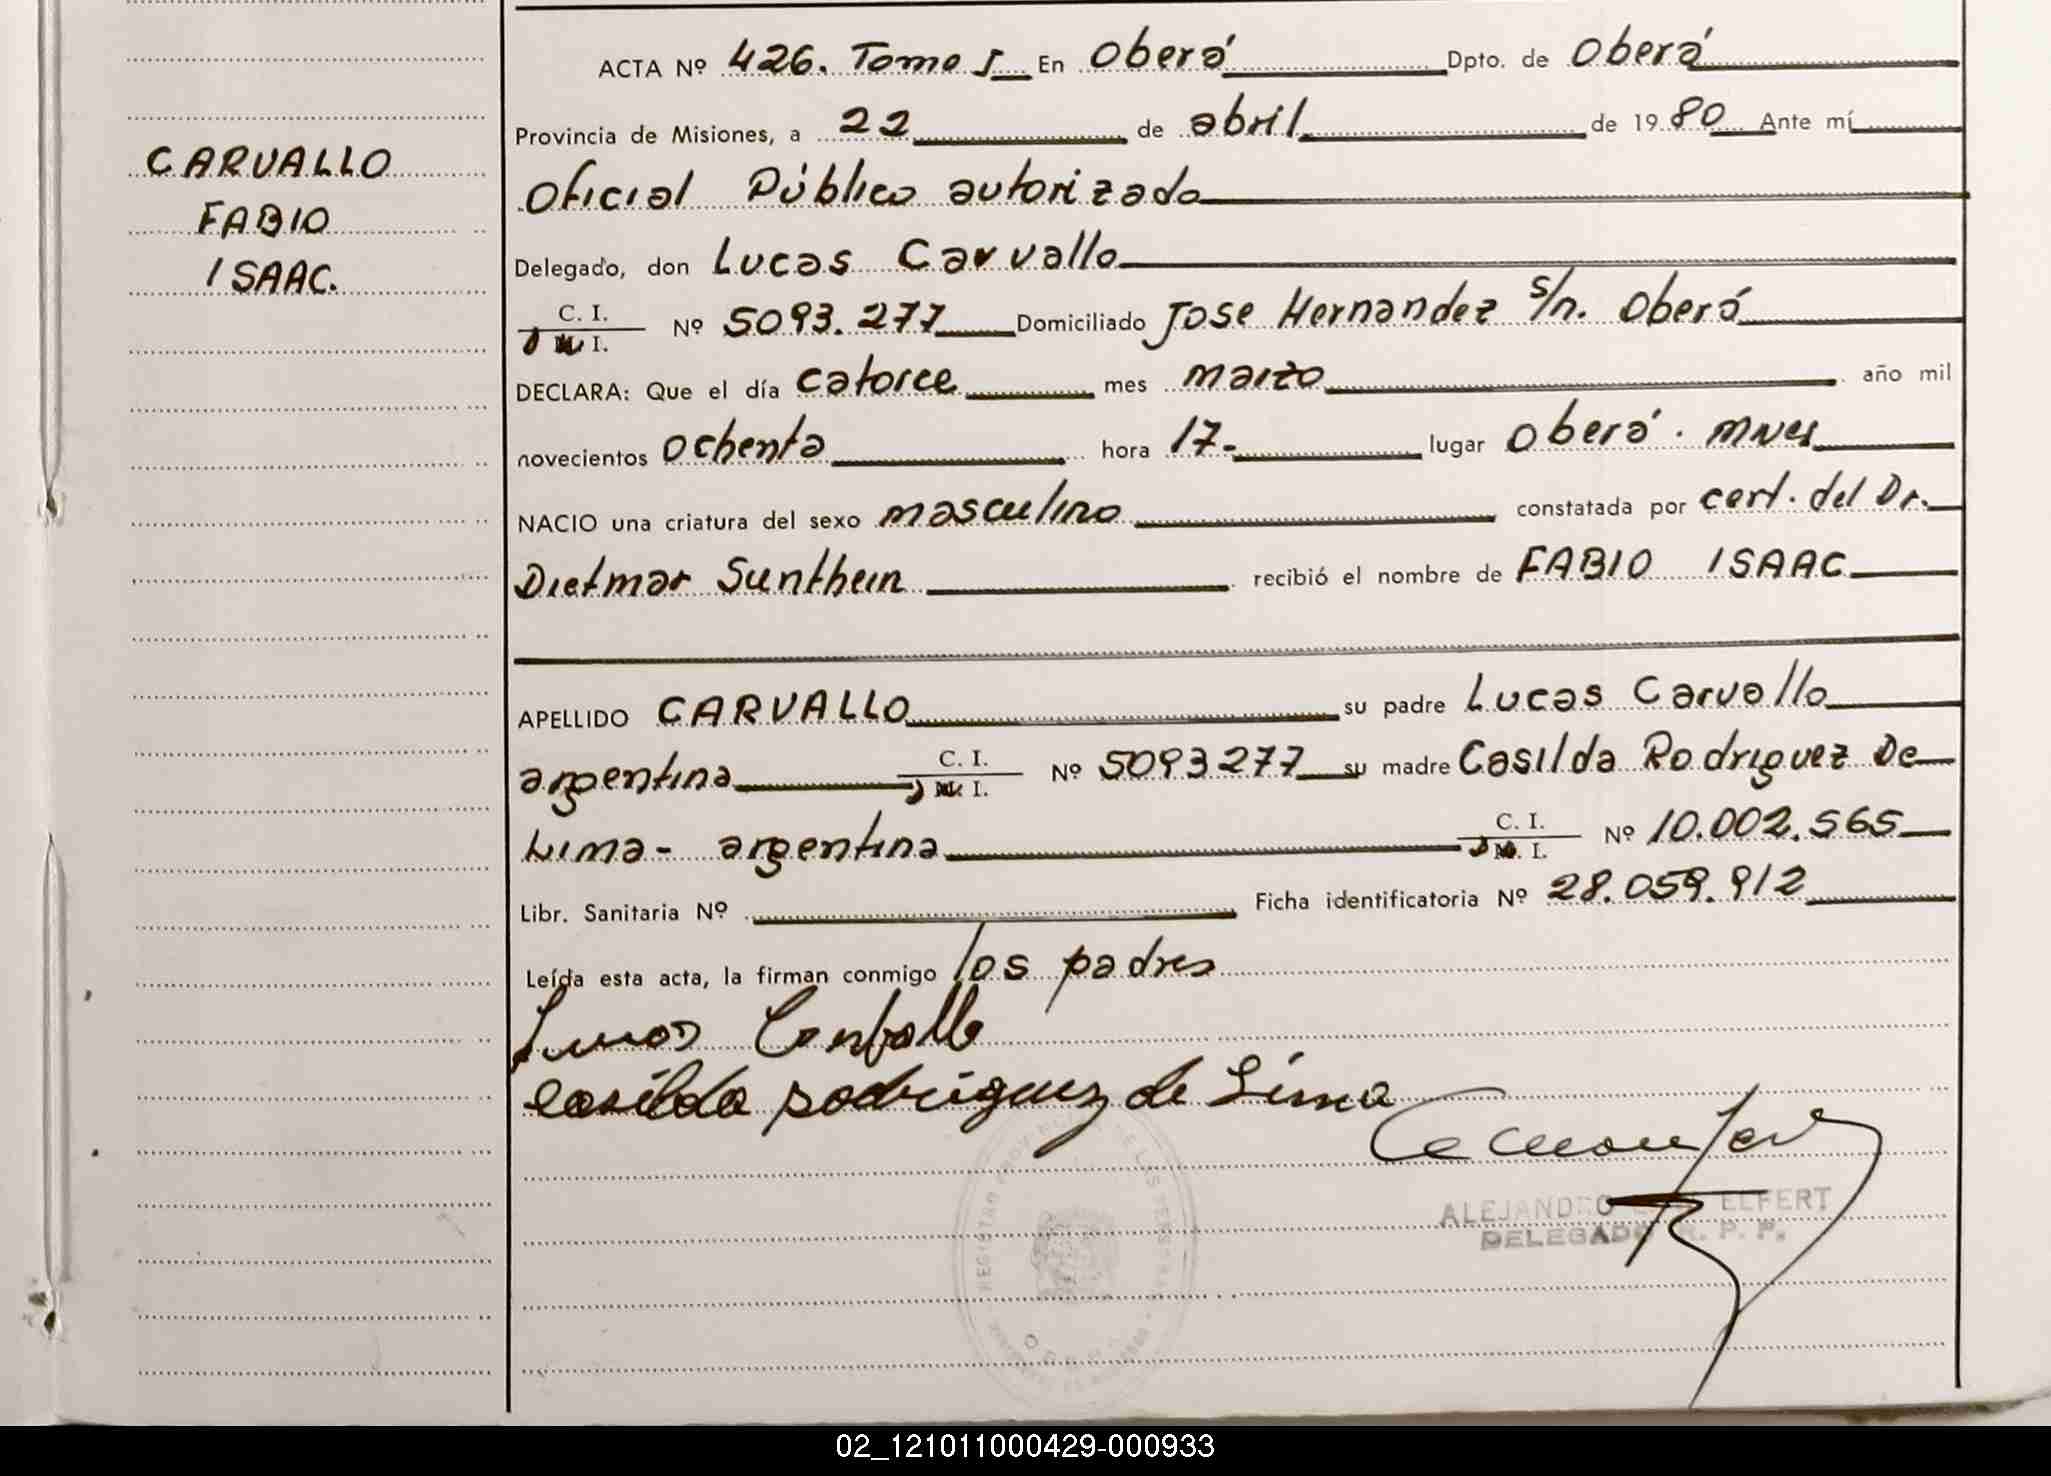 CARVALLO
FABIO
ISAAC.
ACTA Nº 426. Tomo I En Oberá Dpto. de Oberá
Provincia de Misiones, a 22 de abril de 1980 Ante mí
Oficial Público autorizado
Delegado, don Lucas Carvallo
C. I.
I. Nº 5093.277 Domiciliado Jose Hernandez s/n. Oberá
DECLARA: Que el día catorce mes marzo año mil
novecientos ochenta hora 17- lugar Oberá. Mnes
NACIO una criatura del sexo masculino constatada por cert. del Dr.
Dietmar Sunthein recibió el nombre de FABIO ISAAC
APELLIDO CARVALLO su padre Lucas Carvallo
argentina C. I. I. Nº 5093277 su madre Casilda Rodriguez De
Lima- argentina C. I. M. I. Nº 10.002.565
Libr. Sanitaria Nº Ficha identificatoria Nº 28.059.912
Leída esta acta, la firman conmigo los padres
Casilda rodriguez de Lima
ALEJANDRO ELFERT
DELEGADO R. P. P.
02_121011000429-000933